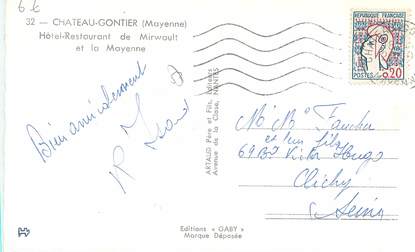 6.6
32 — CHATEAU-GONTIER (Mayenne)
Hôtel-Restaurant de Mirwault
et la Mayenne
Bien amicalement
ARTAUD Père et Fils, Editeurs
Avenue de la Close, NANTES
REPUBLIQUE FRANCAISE
POSTES 0,20
et leur fils
69 Bd Victor Hugo
Clichy
Seine
Editions "GABY"
Marque Déposée